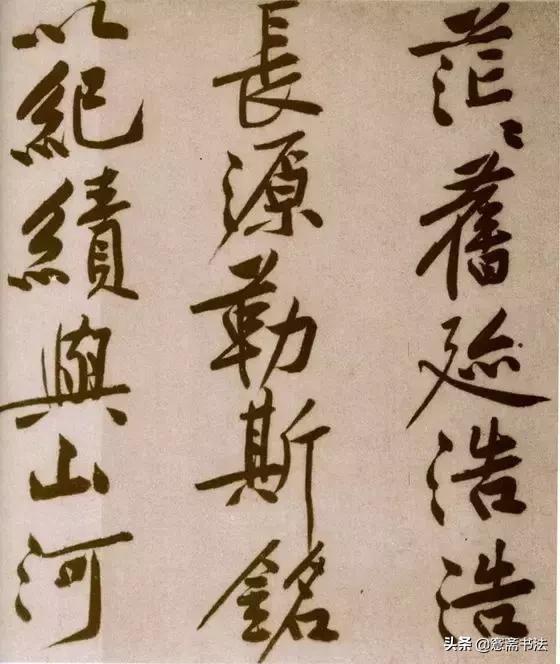 茫〻舊迹浩浩
長源勒斯銘
以紀績與山河
头条 @愙斋书法